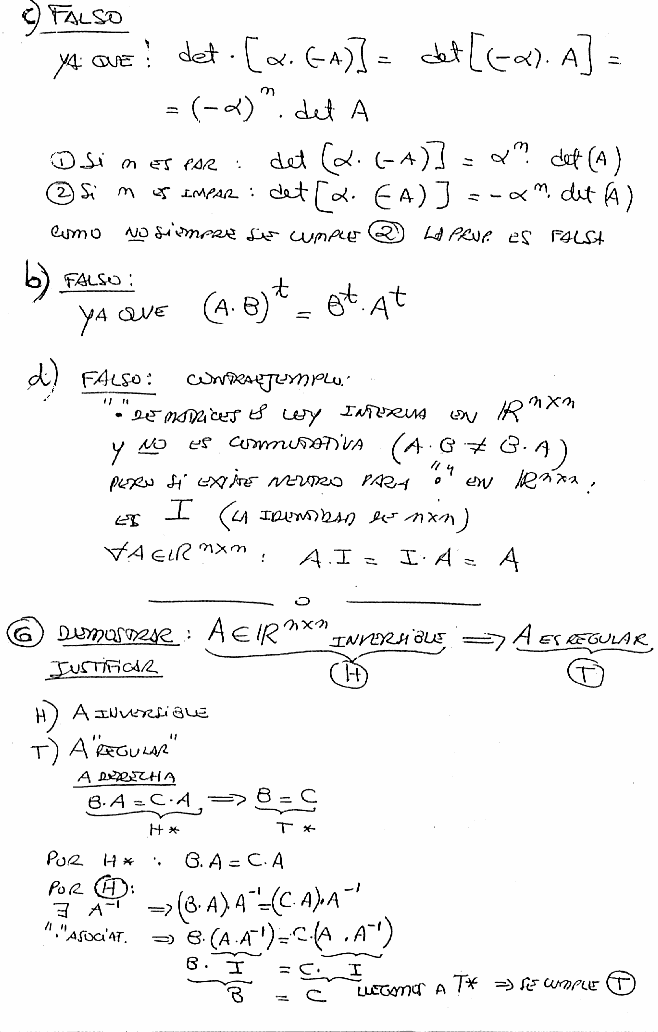 c) FALSO
YA QUE! det·[α.(-A)] = det[(-α).A] =
= (-α)^n. det A
① Si n ES PAR : det [α.(-A)] = α^n. det(A)
② Si n es IMPAR : det[α.(-A)] = -α^n. det(A)
como NO SiEMPRE SE CUMPLE ② LA PROP. ES FALSA
b) FALSO:
YA QUE (A·B)^t = B^t.A^t
d) FALSO: CONTRAEJEMPLO:
"·" DE MATRICES ES LEY INTERNA EN IR^nxn
y NO ES CONMUTATIVA (A·B ≠ B·A)
PERO SI EXISTE NEUTRO PARA "·" EN IR^nxn,
ES I (LA IDENTIDAD DE nxn)
∀A∈IR^nxn : A.I = I·A = A
⑥ DEMOSTRAR : A∈IR^nxn INVERSIBLE ⟹ A ES REGULAR
JUSTIFICAR Ⓗ Ⓣ
H) A INVERSIBLE
T) A "REGULAR"
A DERECHA
B.A = C.A ⟹ B = C
H* T*
POR H* ∴ B.A = C.A
POR Ⓗ:
∃ A^-1 ⟹ (B.A).A^-1 = (C.A).A^-1
"." ASOCIAT. ⟹ B.(A.A^-1) = C.(A.A^-1)
B. I = C. I
B = C LLEGAMOS A T* ⟹ SE CUMPLE Ⓣ